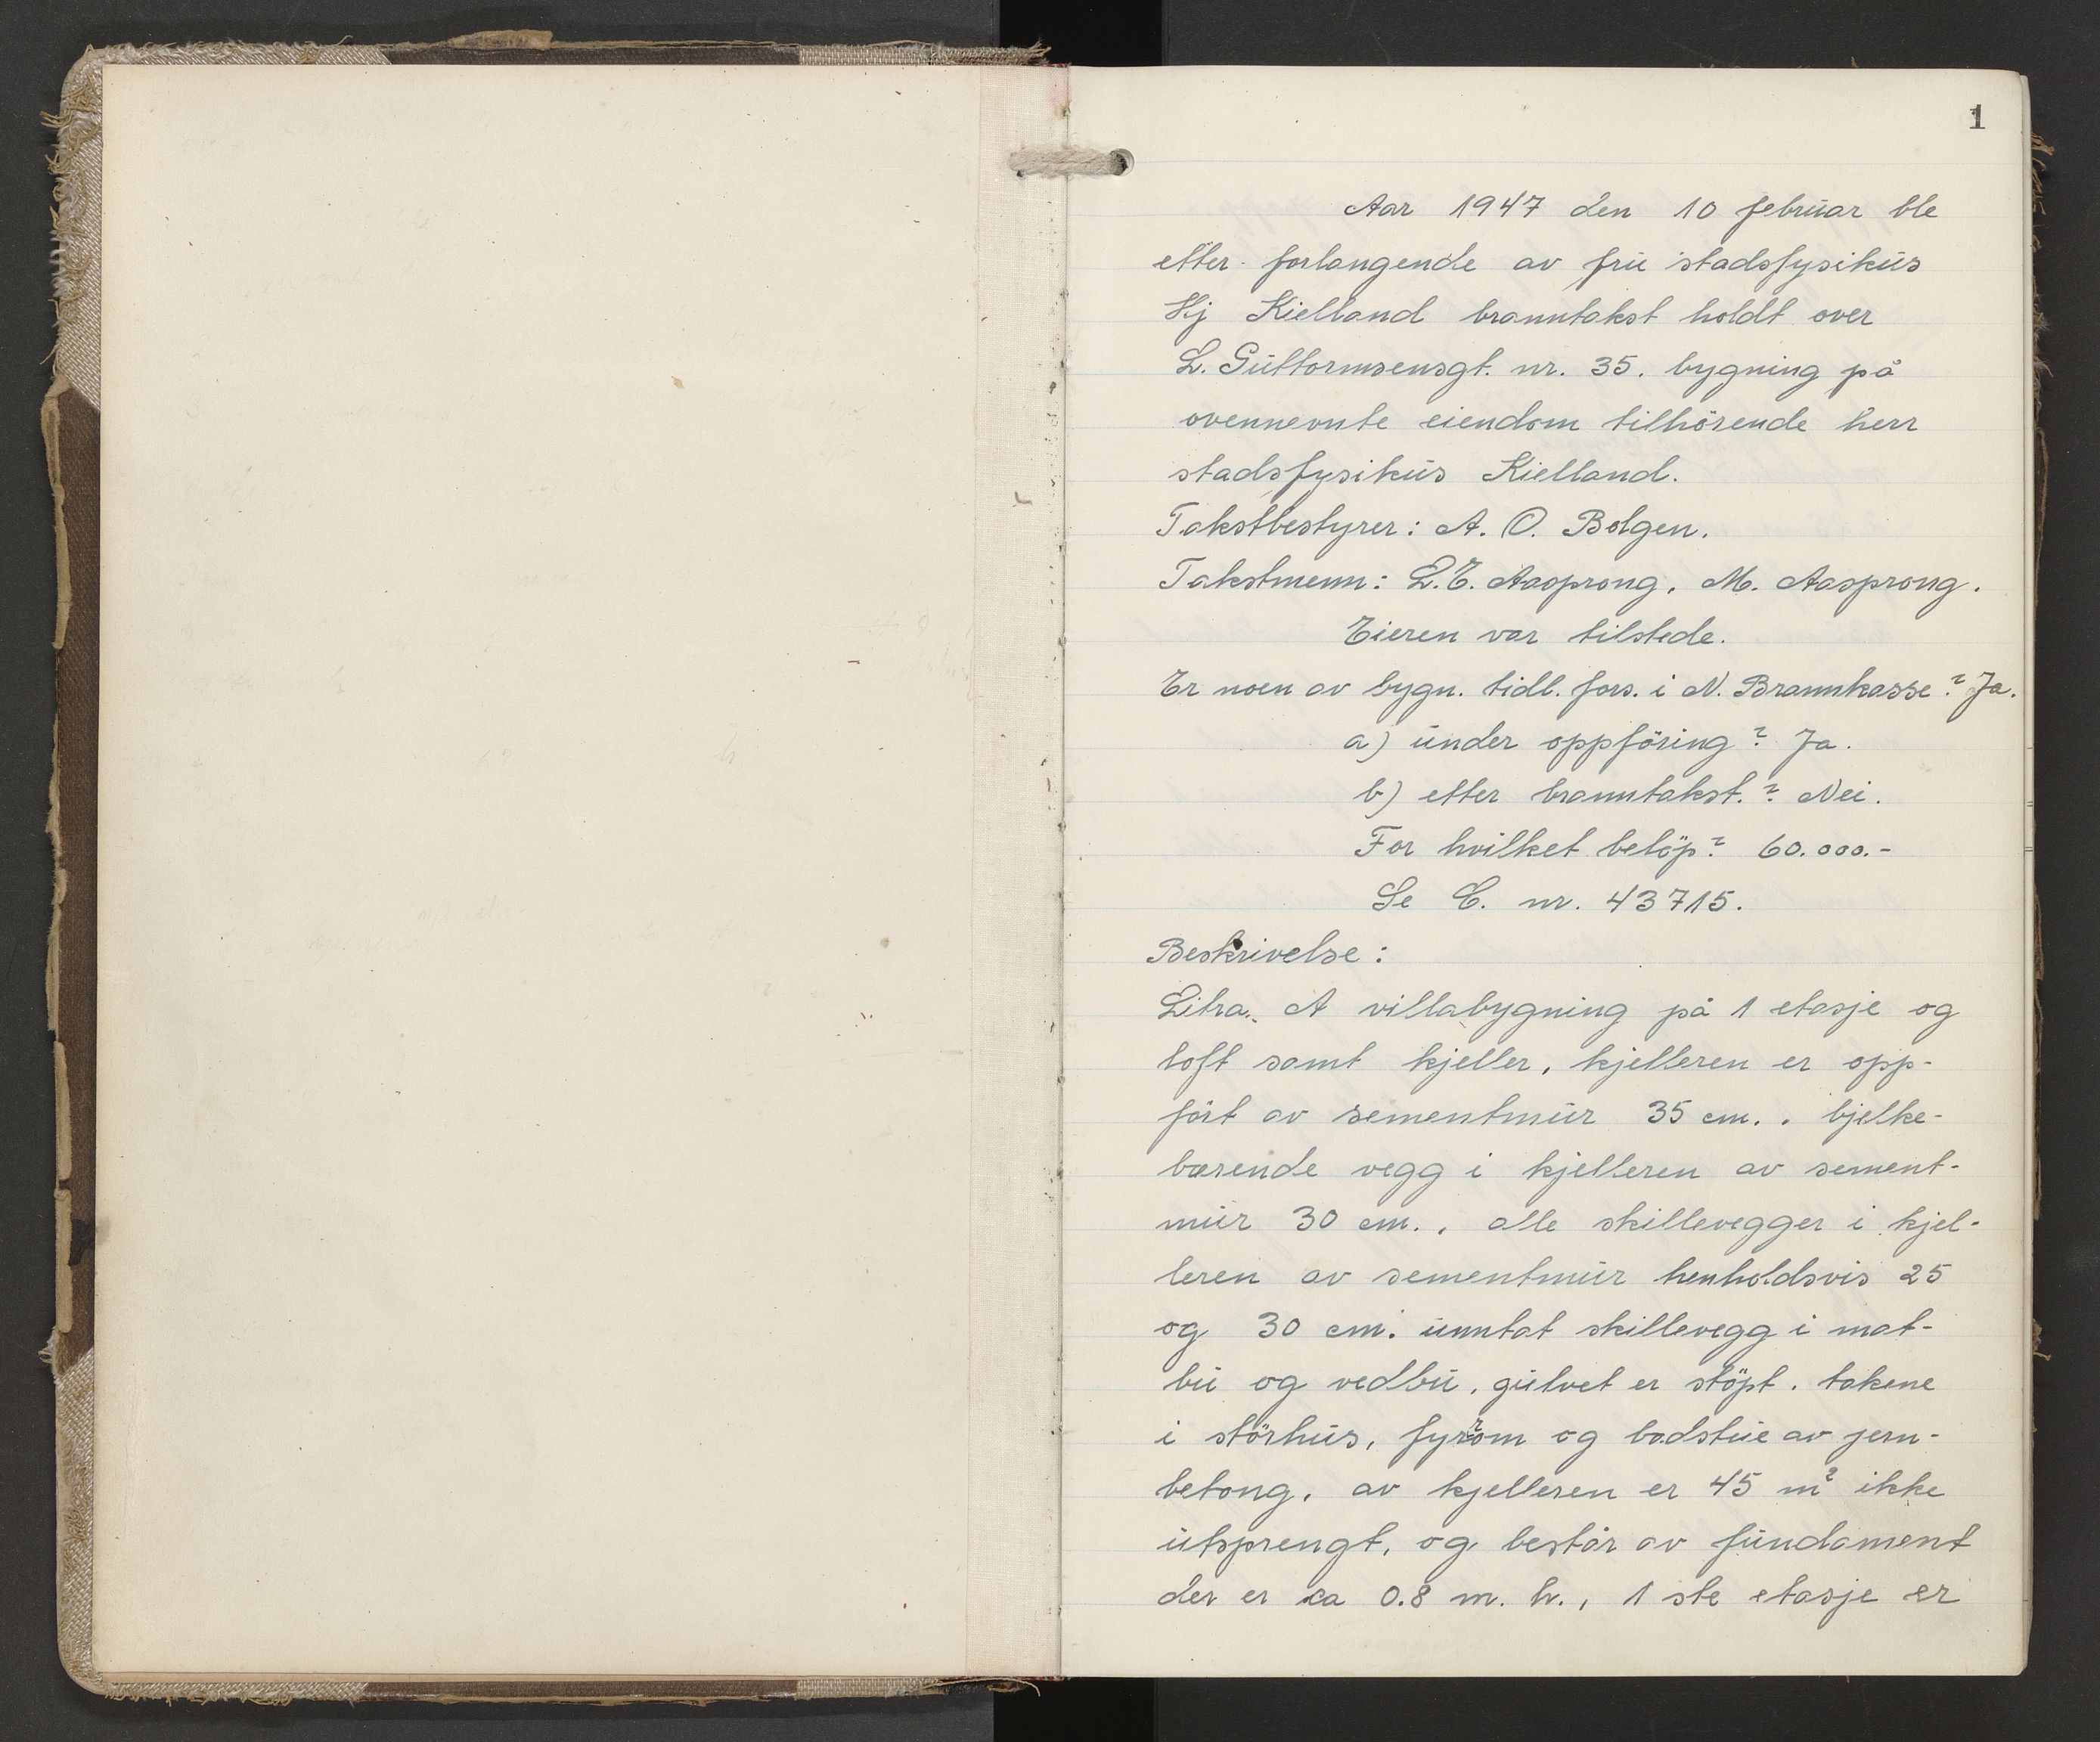 1
Aar 1947 den 10 februar ble
etter forlangende av frü stadsfysiküs
Hj Kielland branntakst holdt over
L. Güttormsensgt. nr. 35. bygning på
ovennevnte eiendom tilhörende herr
stadsfysiküs Kielland.
Takstbestyrer: A. O. Bolgen.
Takstmenn: L.E. Aasprong, M. Aasprong.
Eieren var tilstede.
Er noen av bygn. tidl. fors. i N. Brannkasse? Ja.
a) ünder oppföring? Ja.
b) etter branntakst.? Nei.
For hvilket belöp? 60.000.-
Se C. nr. 43715.
Beskrivelse:
Litra. A villabygning på 1 etasje og
loft samt kjeller, kjelleren er opp-
fört av sementmür 35 cm., bjelke-
bærende vegg i kjelleren av sement-
mür 30 cm., alle skillevegger i kjel-
leren av sementmür henholdsvis 25
og 30 cm. ünntat skillevegg i mat-
bü og vedbü, gülvet er stöpt. takene
i störhüs, fyrrom og badstüe av jern-
betong, av kjelleren er 45 m² ikke
ütsprengt, og består av fündament
der er ca 0.8 m. h., 1 ste etasje er